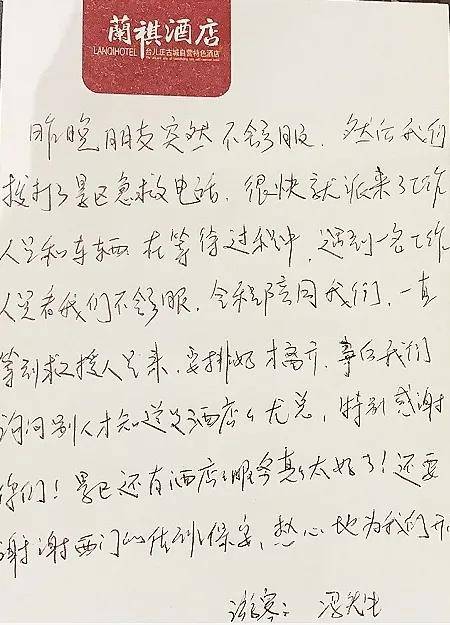 蘭祺酒店
LANQIHOTEL 台儿庄古城自营特色酒店
昨晚朋友突然不舒服，然后我们
拨打了景区急救电话，很快就派来了工作
人员和车辆 在等待过程中，遇到一名工作
人员看我们不舒服，全程陪同我们，一直
等到救援人员来，安排好才离开，事后我们
询问别人才知道是酒店的尤总，特别感谢
你们！景区还有酒店的服务真的太好了！还要
谢谢西门的保安，热心地为我们开
游客：冯先生